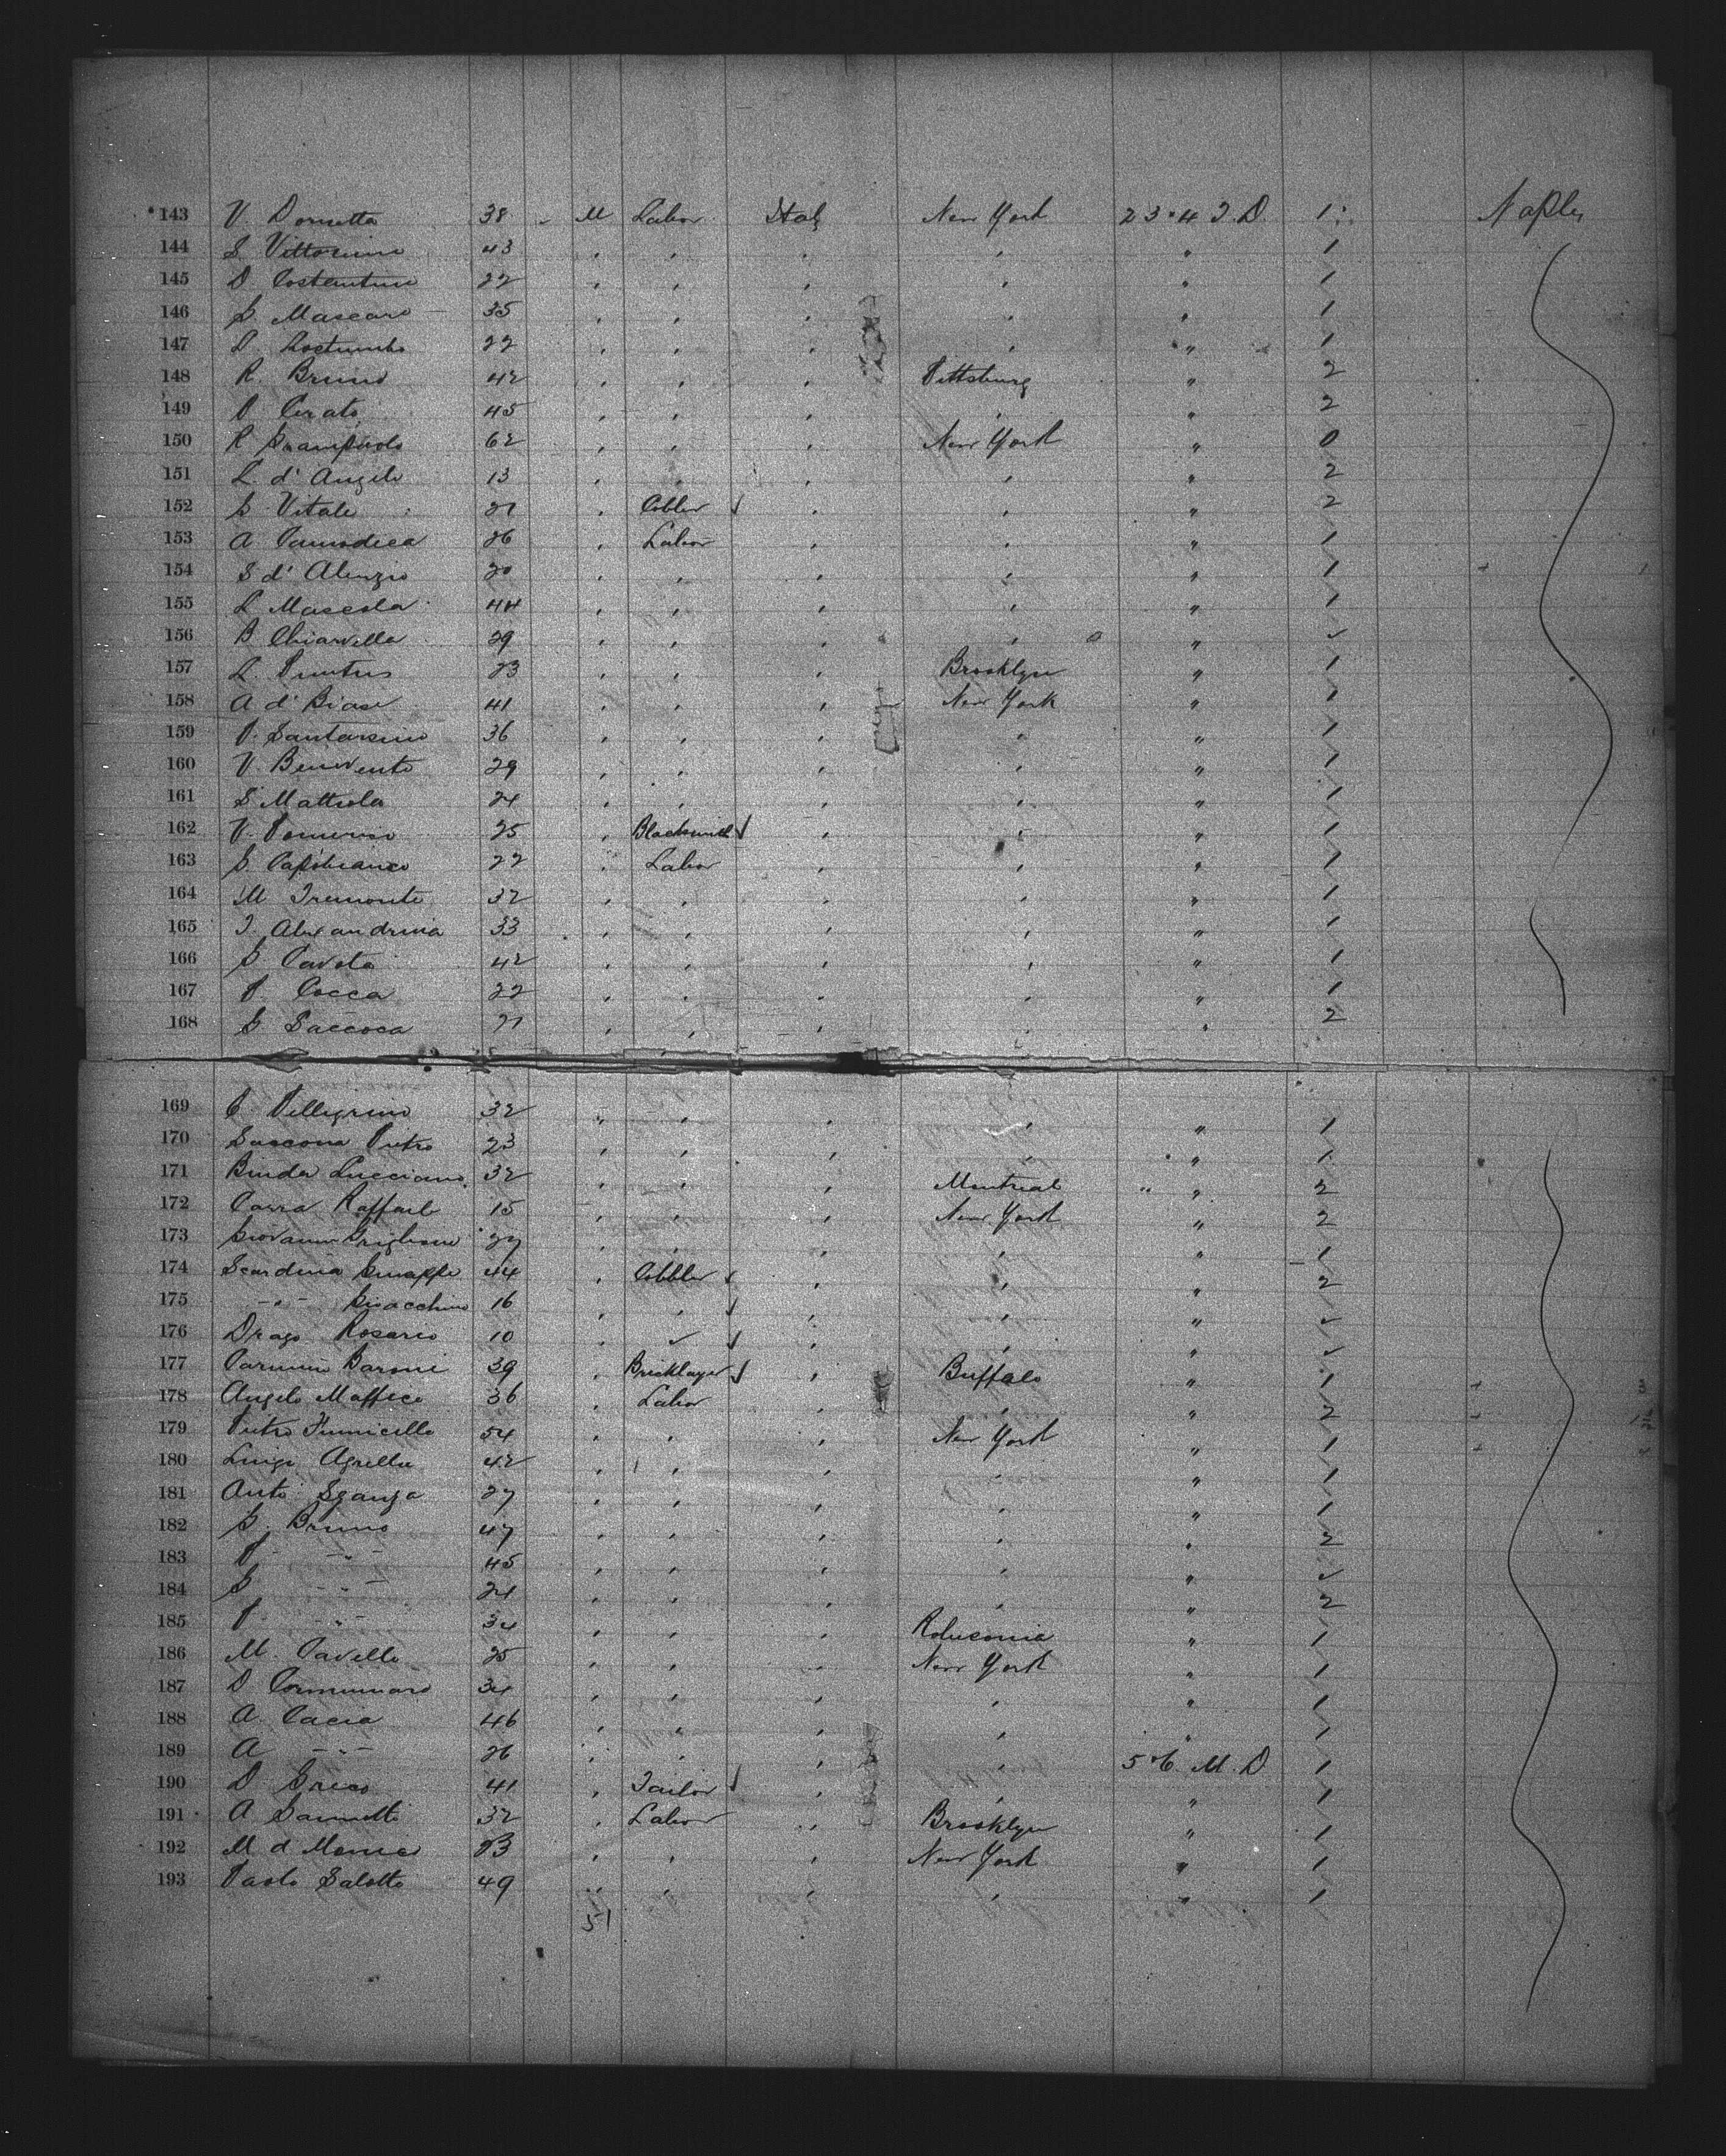 143 V. Dornetta 38 " M Labor Italy New York 2 3 & 4 T. D. 1 Naples
144 S. Vittorino 43 " " " " " 1
145 D. Costantino 22 " " " " " 1
146 G. Mascaro 35 " " " " " 1
147 D. 22 " " " " " 1
148 R. Bruno 42 " " " Pittsburg " 2
149 P. Cerato 45 " " " " " 2
150 R. Giampaolo 62 " " " New York " 0
151 L. d'Angelo 13 " " " " " 2
152 G. Vitale 21 " Cobler " " " 2
153 A. 26 " Labor " " " 1
154 S. d'Alenzio 20 " " " " " 1
155 L. Mascola 44 " " " " " 1
156 B. Chiarvella 29 " " " " " ✓
157 L. 23 " " " Brooklyn " 1
158 A. d'Biase 41 " " " New York " 1
159 P. Santarsino 36 " " " " " 1
160 V. Benevento 29 " " " " " 1
161 S. Mattiola 24 " " " " " 1
162 V. 25 " Blacksmith " " " 1
163 G. Capobianco 22 " Labor " " " 1
164 M. Tremonte 32 " " " " " 1
165 T. Alexandrina 33 " " " " " 1
166 G. Cavota 42 " " " " " 1
167 P. Cocca 22 " " " " " 1
168 G. Saccoca 21 " " " " " 2
169 C. Pellegrino 32 " " " " " 1
170 Saccona Pietro 23 " " " " " 1
171 Binda Lucciano 32 " " " Montreal " " 2
172 Carra Raffaele 15 " " " New York " 2
173 Giovanni Griglione 27 " " " " " 1
174 Scardina Giuseppe 44 " Cobbler " " " 2
175 " Gioacchino 16 " " " " " ✓
176 Drago Rosario 10 " ✓ " " " ✓
177 Carmine Baroni 39 " Bricklayer " Buffalo " 1
178 Angelo Maffeco 36 " Labor " " " 2
179 Pietro Fiumicello 54 " " " New York " 1
180 Luigi Agrella 42 " " " " " 1
181 Anto Sganga 27 " " " " " 1
182 G. Bruno 47 " " " " " 2
183 P. " 45 " " " " " ✓
184 G. " 24 " " " " " 2
185 P. " 34 " " " " 1
186 M. Pavello 25 " " " New York " 1
187 D. 34 " " " " " 1
188 A. Cacia 46 " " " " " 1
189 A " 26 " " " " 5 & 6 M. D 1
190 D. Greco 41 " Tailor " " " 1
191 A. Iannotti 32 " Labor " Brooklyn " 1
192 M d Monico 23 " " " New York " 1
193 Paolo Salotto 49 " " " " " 1
51